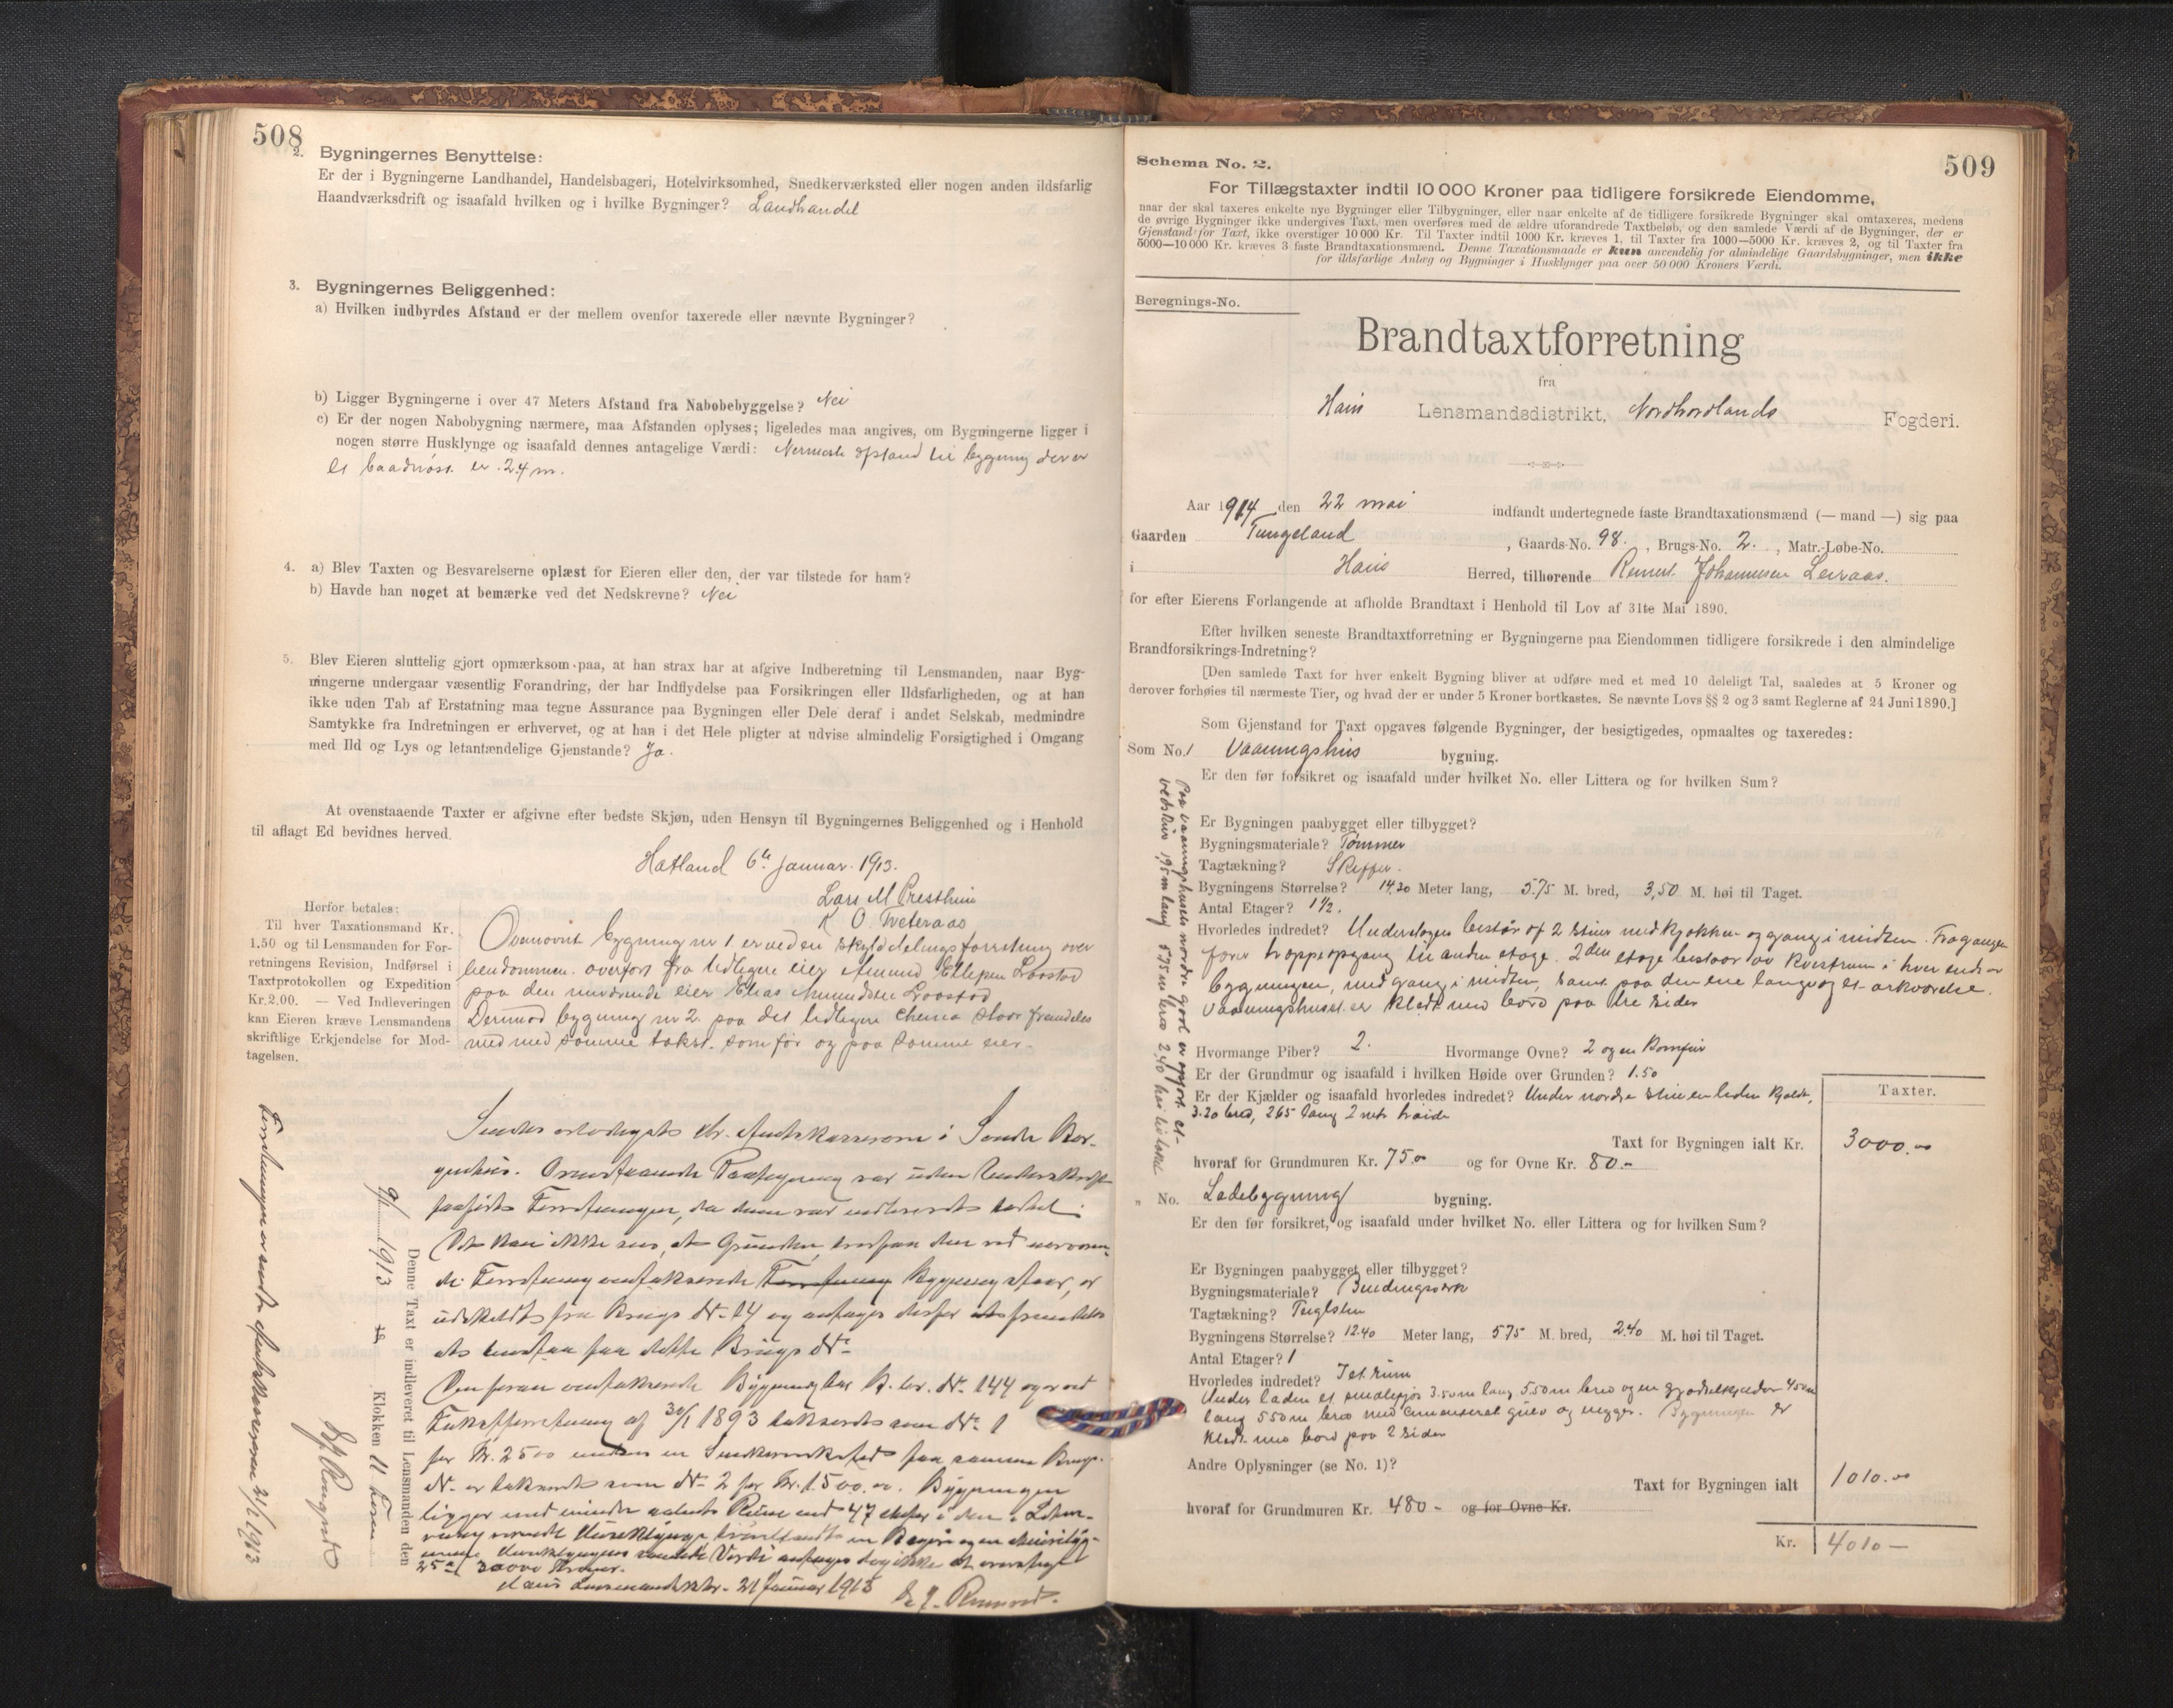 508
2. Bygningernes Benyttelse:
Er der i Bygningerne Landhandel, Handelsbageri, Hotelvirksomhed, Snedkerværksted eller nogen anden ildsfarlig
Haandværksdrift og isaafald hvilken og i hvilke Bygninger? Landhandel
3. Bygningernes Beliggenhed:
a) Hvilken indbyrdes Afstand er der mellem ovenfor taxerede eller nævnte Bygninger?
b) Ligger Bygningerne i over 47 Meters Afstand fra Nabobebyggelse? Nei
c) Er der nogen Nabobygning nærmere, maa Afstanden oplyses; ligeledes maa angives, om Bygningerne ligger i
nogen større Husklynge og isaafald dennes antagelige Værdi: Nermeste afstand til bygning der er
et baadnøst er 24 m.
4. a) Blev Taxten og Besvarelserne oplæst for Eieren eller den, der var tilstede for ham?
b) Havde han noget at bemærke ved det Nedskrevne? Nei
5. Blev Eieren sluttelig gjort opmærksom paa, at han strax har at afgive Indberetning til Lensmanden, naar Byg-
ningerne undergaar væsentlig Forandring, der har Indflydelse paa Forsikringen eller Ildsfarligheden, og at han
ikke uden Tab af Erstatning maa tegne Assurance paa Bygningen eller Dele deraf i andet Selskab, medmindre
Samtykke fra Indretningen er erhvervet, og at han i det Hele pligter at udvise almindelig Forsigtighed i Omgang
med Ild og Lys og letantændelige Gjenstande? Ja.
At ovenstaaende Taxter er afgivne efter bedste Skjøn, uden Hensyn til Bygningernes Beliggenhed og i Henhold
til aflagt Ed bevidnes herved.
Hatland 6te januar. 1913.
Lars M Presthun
K O. Tveteraas
Herfor betales:
Til hver Taxationsmand Kr.
1.50 og til Lensmanden for For-
retningens Revision, Indførsel i
Taxtprotokollen og Expedition
Kr. 2.00. — Ved Indleveringen
kan Eieren kræve Lensmandens
skriftlige Erkjendelse for Mod-
tagelsen.
Ovenovnt bygning nr 1 er ved en skylddelingsforretning over
eiendommen overført fra tidligere eier Amund Ellefsen
paa den nuværende eier Elias Amundsen
Derimod bygning nr 2 paa det tidligere chema staar fremdeles
med samme takst som før og paa samme eier.
Sendes Hr. Amtskassereren i Søndre Ber-
genhus. Ovenstaaende Paategning var uden Underskrift
paaført Forretningen, da denne var indleveret
Det kan ikke sees, at Grunden, hvorpaa den ved nærværen-
de Forretning omtakserede Forretning Bygning staar, er
udskilt fra Brugs No 14 og antages derfor at fremdeles
at henstaa paa dette Brugs No
Den foran omtakserede Bygning har B. No. 144 og er ved
Takstforretning af 30/1 1893 takseret som No 1
for Kr. 2500 medens en Snedkerverksted paa samme Brugs-
No er takseret som No 2 for Kr. 1500.00. Bygningen
ligger med mindre Rum end 47 meter
25 a 30000 Kroner.
Haus Lensmandskontor 21 Januar 1913
Forretningen er sendt Amtskassereren 21/1 1913
9/1 1913 Klokken 11 form
Denne Taxt er indleveret til Lensmanden den
509
Schema No. 2.
For Tillægstaxter indtil 10 000 Kroner paa tidligere forsikrede Eiendomme,
naar der skal taxeres enkelte nye Bygninger eller Tilbygninger, eller naar enkelte af de tidligere forsikrede Bygninger skal omtaxeres, medens
de øvrige Bygninger ikke undergives Taxt, men overføres med de ældre uforandrede Taxtbeløb, og den samlede Værdi af de Bygninger, der er
Gjenstand for Taxt, ikke overstiger 10 000 Kr. Til Taxter indtil 1000 Kr. kræves 1, til Taxter fra 1000—5000 Kr. kræves 2, og til Taxter fra
5000—10 000 Kr. kræves 3 faste Brandtaxationsmænd. Denne Taxationsmaade er kun anvendelig for almindelige Gaardsbygninger, men ikke
for ildsfarlige Anlæg og Bygninger i Husklynger paa over 50 000 Kroners Værdi.
Beregnings-No.
Brandtaxtforretning
fra
Haus Lensmandsdistrikt, Nordhordlands Fogderi.
Aar 1914 den 22 mai indfandt undertegnede faste Brandtaxationsmænd (— mand —) sig paa
Gaarden Tungeland, Gaards-No. 98., Brugs-No. 2., Matr.-Løbe-No.
i Haus Herred, tilhørende Reinert Johannesen Leiraas.
for efter Eierens Forlangende at afholde Brandtaxt i Henhold til Lov af 31te Mai 1890.
Efter hvilken seneste Brandtaxtforretning er Bygningerne paa Eiendommen tidligere forsikrede i den almindelige
Brandforsikrings-Indretning?
[Den samlede Taxt for hver enkelt Bygning bliver at udføre med et med 10 deleligt Tal, saaledes at 5 Kroner og
derover forhøies til nærmeste Tier, og hvad der er under 5 Kroner bortkastes. Se nævnte Lovs §§ 2 og 3 samt Reglerne af 24 Juni 1890.]
Som Gjenstand for Taxt opgaves følgende Bygninger, der besigtigedes, opmaaltes og taxeredes:
Som No. 1 Vaaningshus bygning.
Er den før forsikret og isaafald under hvilket No. eller Littera og for hvilken Sum?
Er Bygningen paabygget eller tilbygget?
Bygningsmateriale? Tømmer
Tagtækning? Skiffer.
Bygningens Størrelse? 14.20 Meter lang, 5.75 M. bred, 3,50 M. høi til Taget.
Antal Etager? 1½.
Hvorledes indredet? Underetagen består af 2 stuer med kjøkken og gang i midten. Fra gangen
fører trappeopgang til anden etage. 2den etage bestaar av kvistrum i hver ende av
bygningen, med gang i midten, samt paa den ene langvæg et arkværelse.
Vaaningshuset er klædt med bord paa tre sider
Hvormange Piber? 2. Hvormange Ovne? 2 og en Komfur
Er der Grundmur og isaafald i hvilken Høide over Grunden? 1.50
Er der Kjælder og isaafald hvorledes indredet? Under nordre stue en liden kjelder,
3.20 bred, 265 lang 2 mtr høide
Taxter.
Taxt for Bygningen ialt Kr. 3000.00
hvoraf for Grundmuren Kr. 750 og for Ovne Kr. 80.-
Paa vaaningshusets nordre gavl er opført et
vedskur 1,95 m lang 5.75 m bred 2,40 høi til taket
" No. Ladebygning bygning.
Er den før forsikret, og isaafald under hvilket No. eller Littera og for hvilken Sum?
Er Bygningen paabygget eller tilbygget?
Bygningsmateriale? Bindingsverk
Tagtækning? Teglsten
Bygningens Størrelse? 12.40 Meter lang, 5.75 M. bred, 2.40 M. høi til Taget.
Antal Etager? 1
Hvorledes indredet? I et rum
Under laden et smalefjøs 3.50 m lang 5.50 m bred og en gjødselkjelder 4.50 m
lang 5.50 m bred med cementeret gulv og vegger. Bygningen er
klædt med bord paa 2 sider
Andre Oplysninger (se No. 1)?
Taxt for Bygningen ialt 1010.00
hvoraf for Grundmuren Kr. 480 - og for Ovne Kr.
Kr. 4010 —